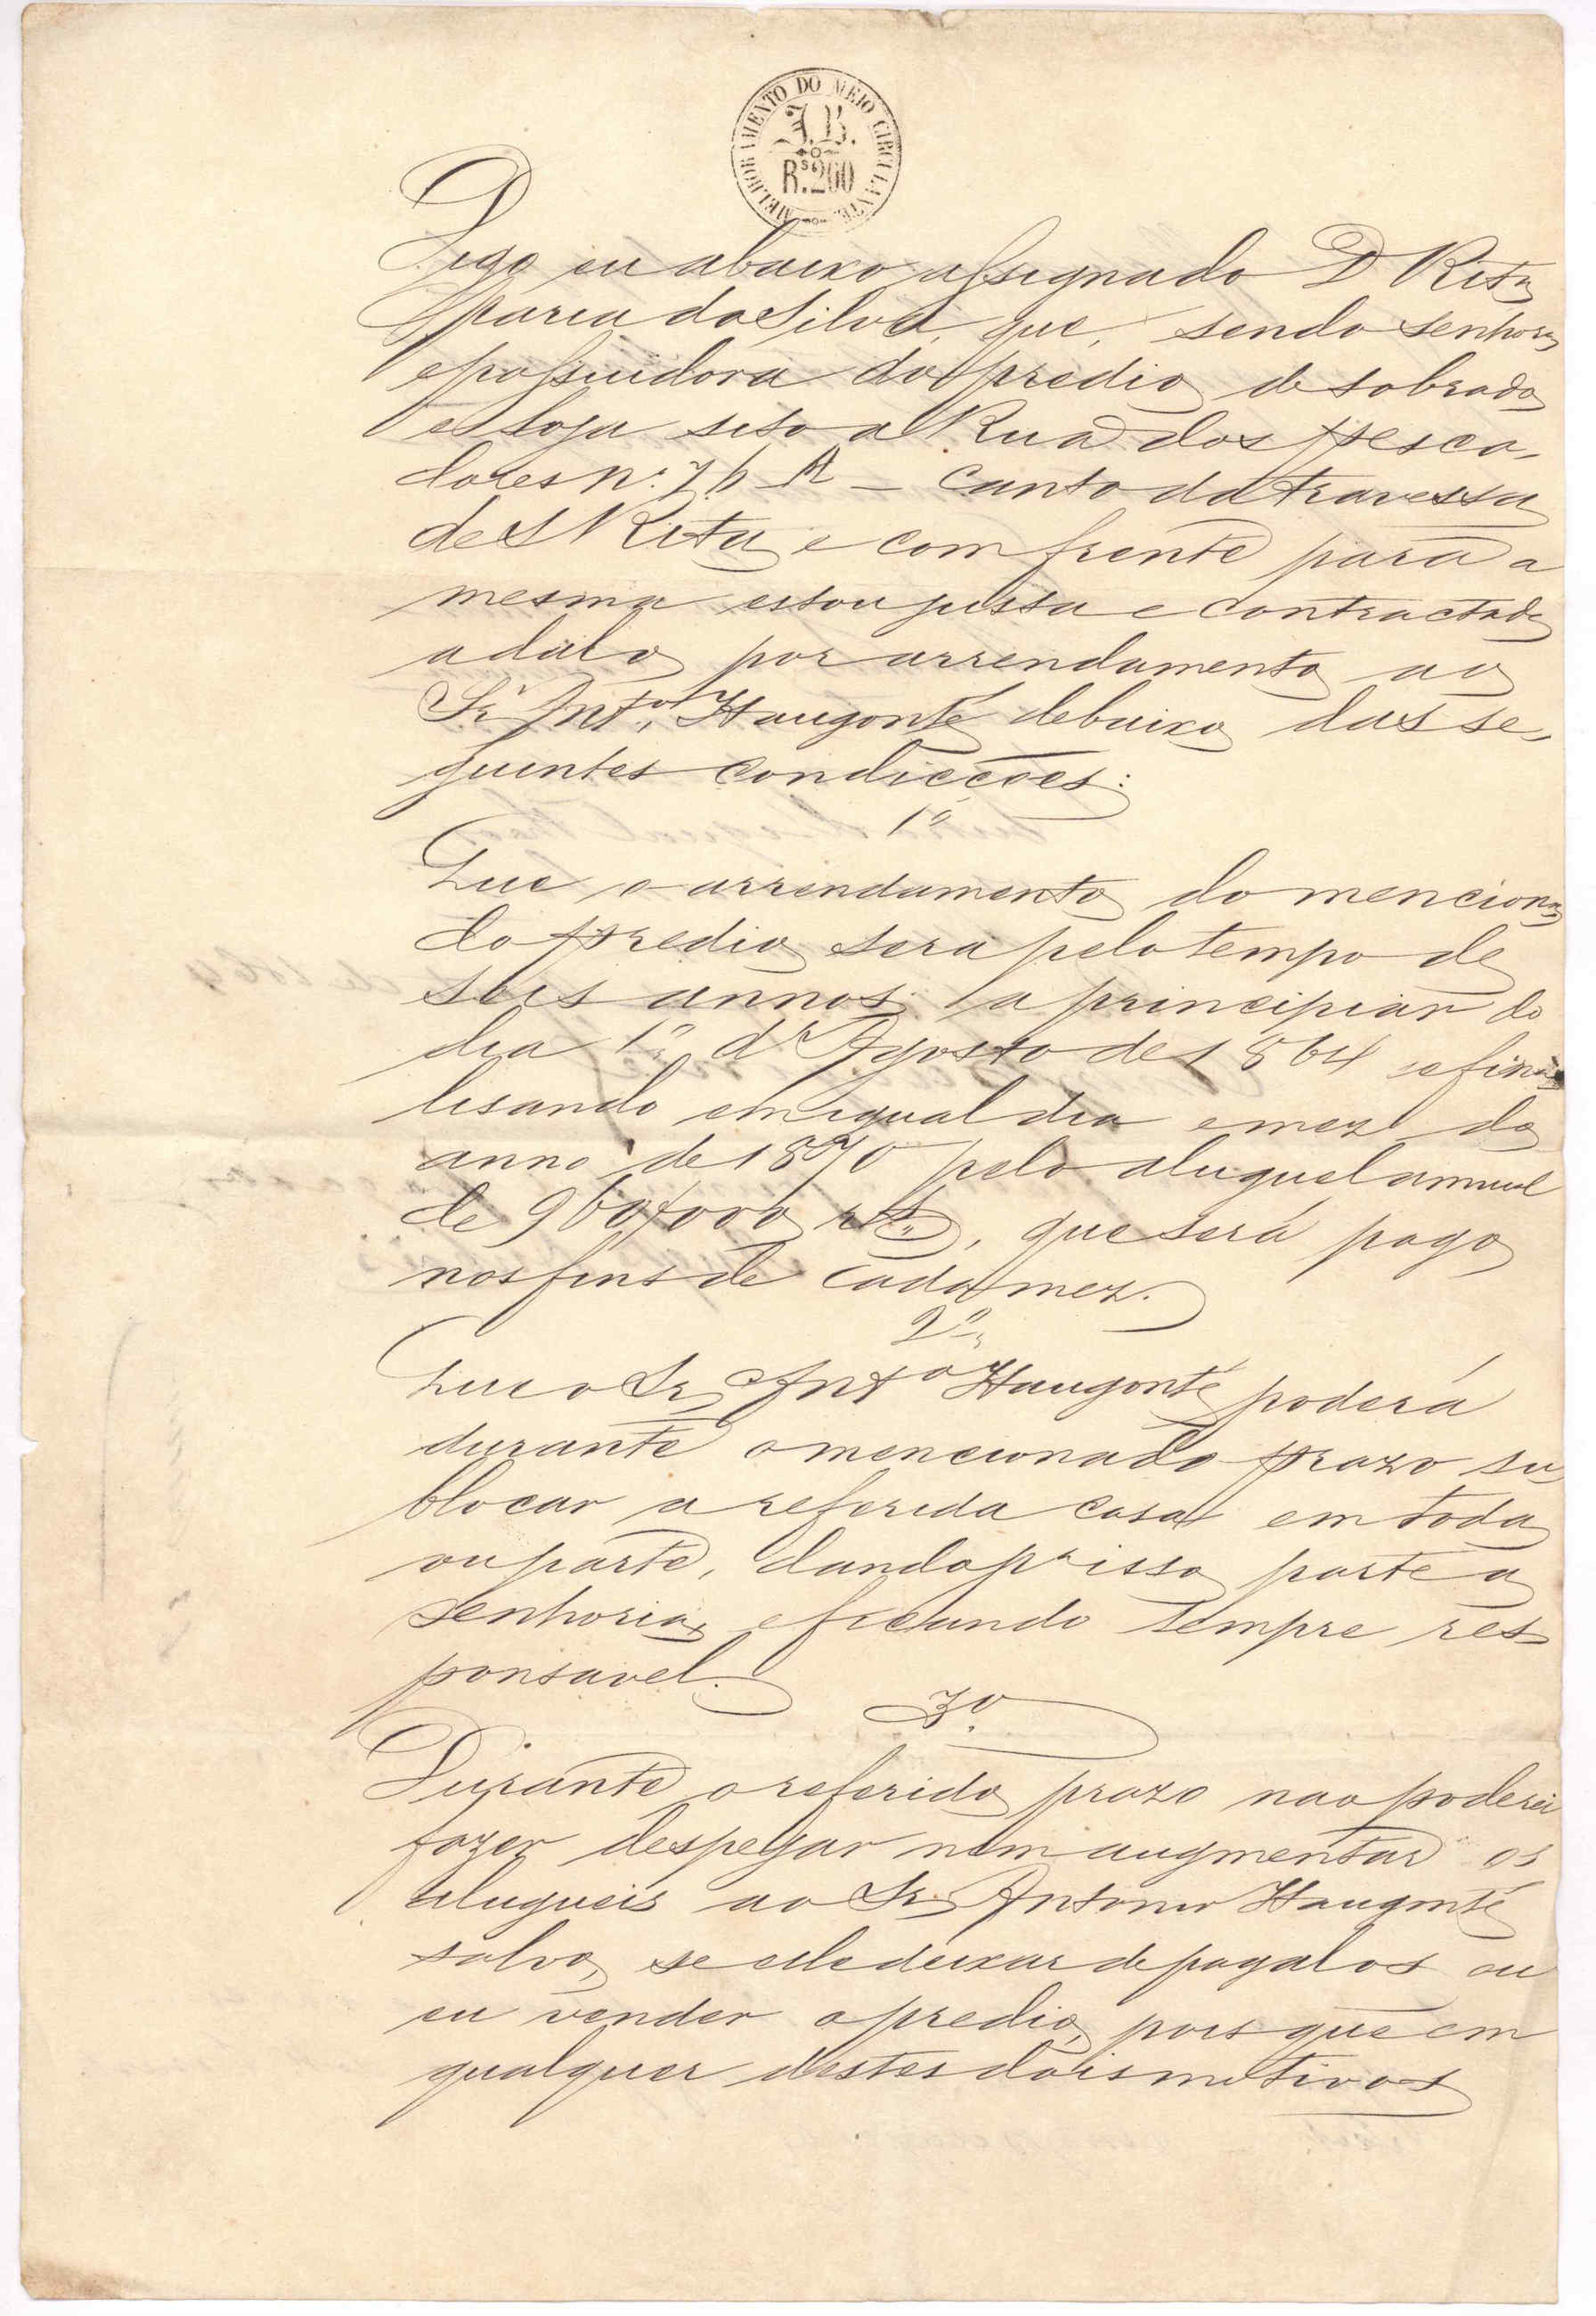 MELHORAMENTO DO MEIO CIRCULANTE
J.B.
Rs.200
Digo eu abaixo assignado D Rita
Maria da Silva, que, sendo senhora
e possuidora do predio de sobrado
e Loja sito a Rua dos pesca-
dores Nº 76 A — canto da travessa
de S Rita e com frente para a
mesma estou justa e contractada
a dalo por arrendamento ao
Sr Antº Haugonté debaixo das se-
guintes condicções:
1ª
Que o arrendamento do menciona
do predio sera pelo tempo de
seis annos a principiar do
dia 1º d'Agosto de 1864 e fina
lisando em igual dia e mez do
anno de 1870 pelo aluguel annual
de 960$000 rs, que será pago
nos fins de cada mez.
2ª
Que o Sr Antº Haugonté poderá
durante o mencionado prazo su
blocar a referida casa em toda
ou parte, dando pr isso parte a
senhoria, e ficando sempre res
ponsavel.
3º
Durante o referido prazo nao poderei
fazer despejar nem augmentar os
alugueis ao Sr Antonio Haugonté
salvo, se elle deixar de pagalos ou
eu vender o predio, pois que em
qualquer destes dois motivos